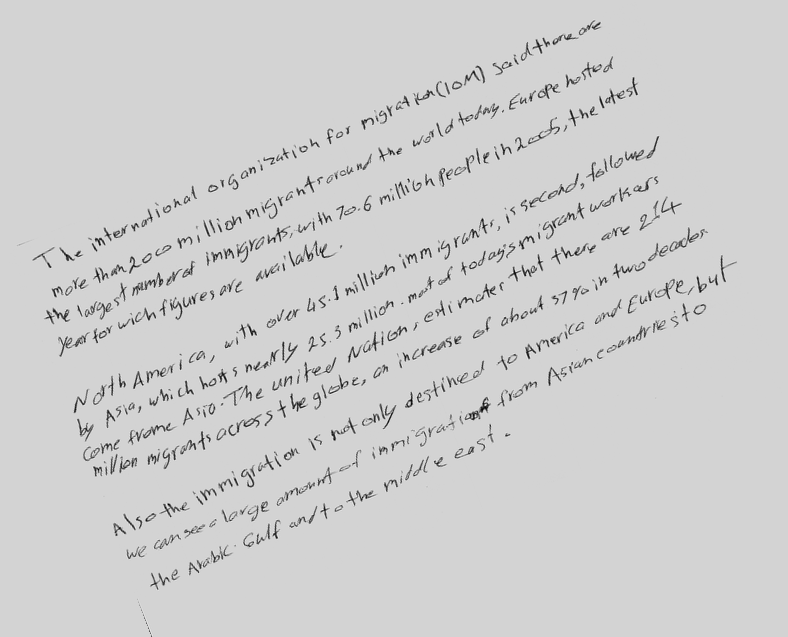 The international organization for migration (IOM) said there are
more than 2000 million migrants around the world today. Europe hosted
the largest number of immigrants, with 70.6 million people in 2005, the latest
year for wich figures are available.
North America, with over 45.1 million immigrants, is second, followed
by Asia, which hosts nearly 25.3 million. most of today's migrant workers
come frome Asia. The united Nation, estimates that there are 214
million migrants across the globe, an increase of about 37% in two decades.
Also the immigration is not only destined to America and Europe, but
we can see a large amount of immigration from Asian countries to
the Arabic Gulf and to the middle east.